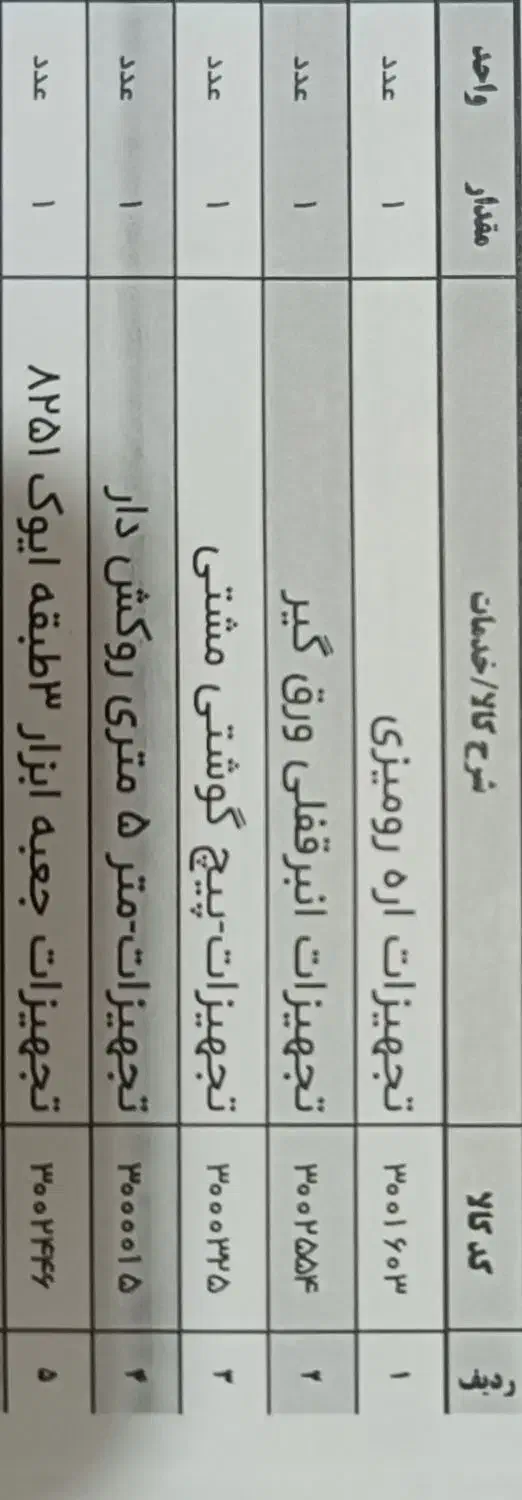 ردیف کد کالا شرح کالا/خدمات مقدار واحد
۱ ۳۰۰۱۶۰۳ تجهیزات اره رومیزی ۱ عدد
۲ ۳۰۰۲۵۵۴ تجهیزات انبرقفلی ورق گیر ۱ عدد
۳ ۳۰۰۰۳۲۵ تجهیزات-پیچ گوشتی مشتی ۱ عدد
۴ ۳۰۰۰۰۱۵ تجهیزات-متر ۵ متری روکش دار ۱ عدد
۵ ۳۰۰۲۴۴۶ تجهیزات جعبه ابزار ۳طبقه ایوک ۸۲۵۱ ۱ عدد